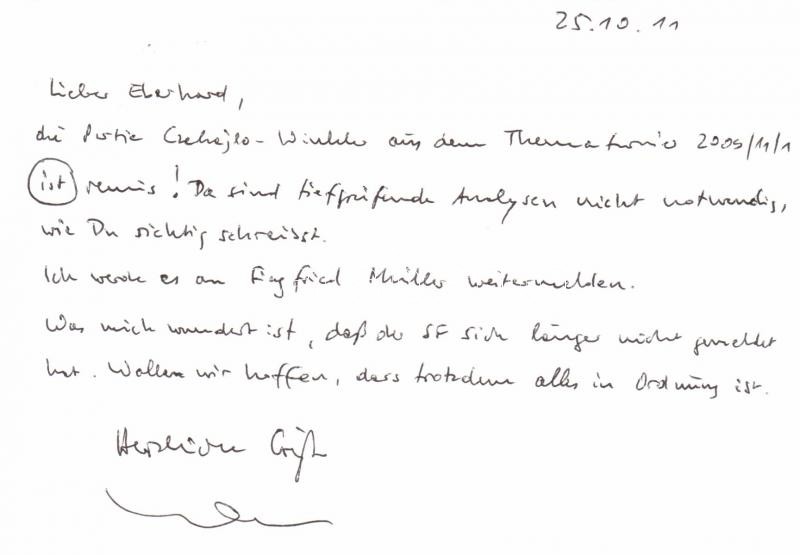 25.10.11
Lieber Eberhard,
die Partie Czehajlo-Winkler aus dem Thematurnier 2009/11/1
ist remis! Da sind tiefgreifende Analysen nicht notwendig,
wie Du richtig schreibst.
Ich werde es an Siegfried Müller weitermelden.
Was mich wundert ist, daß der SF sich länger nicht gemeldet
hat. Wollen wir hoffen, dass trotzdem alles in Ordnung ist.
Herzliche Grüße